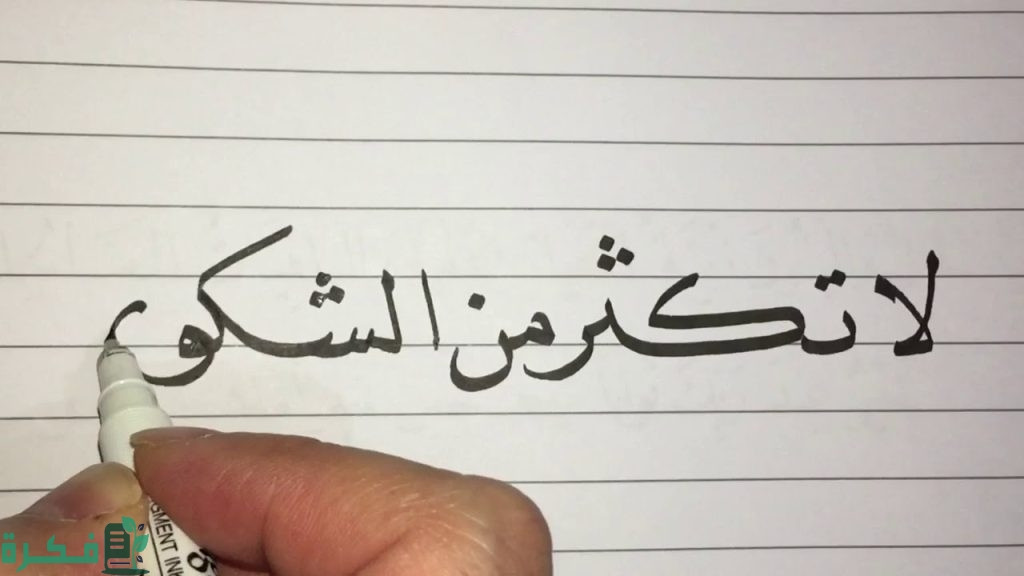 لا تكثر من الشكوى
GMENT INK
فكرة